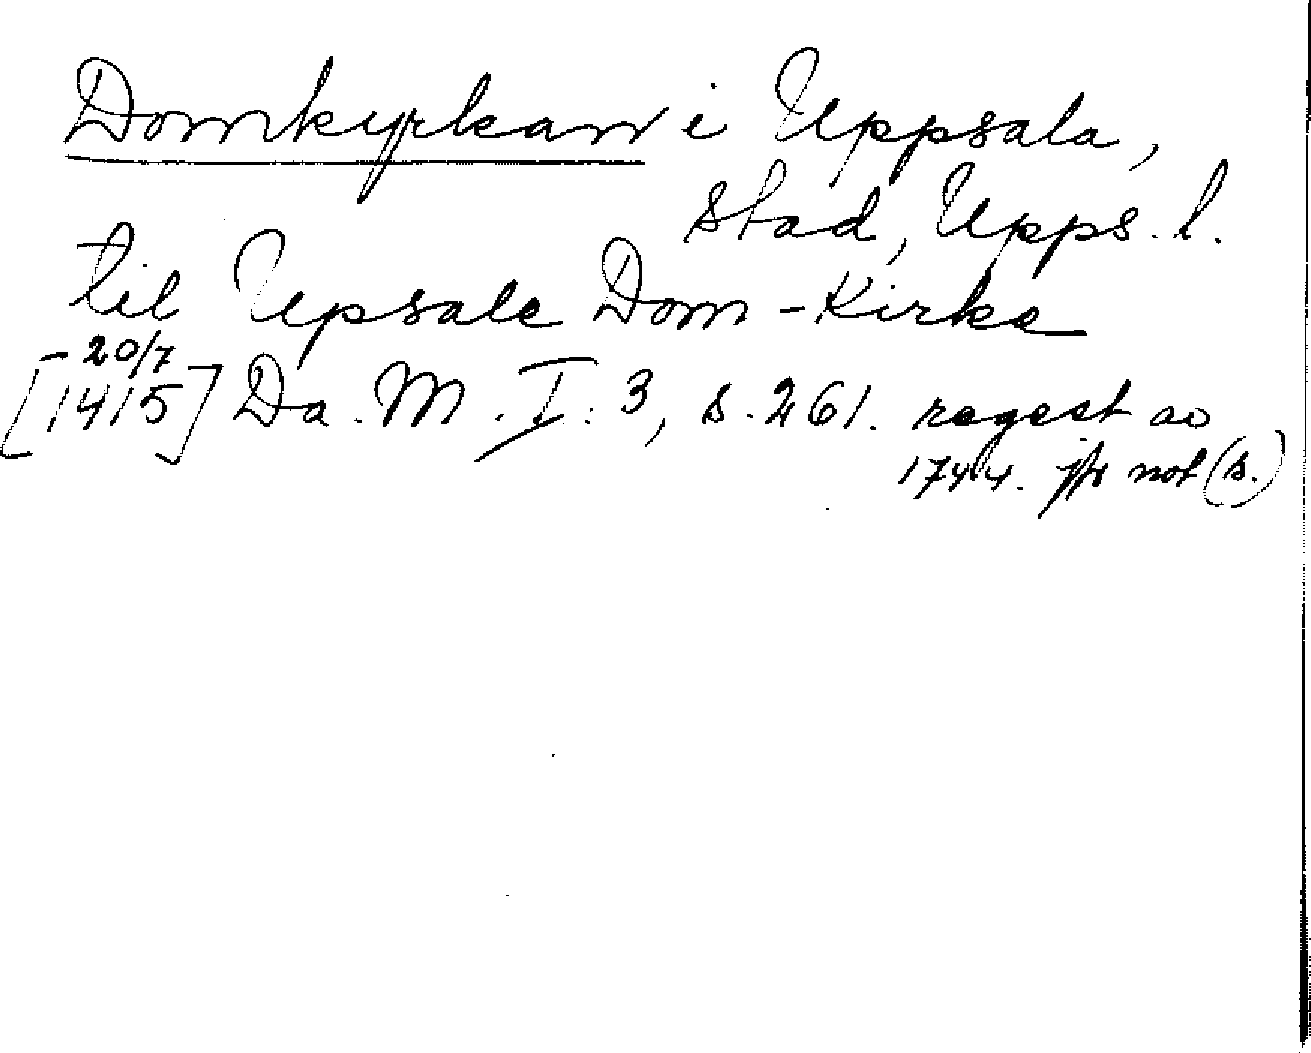 Domkyrkan i Uppsala,
stad, Upps. l.
til Upsale Dom-Kirke
20/7
[1415] Da. M. I. 3, s. 261. regest ao
1744. jfr not (s.)